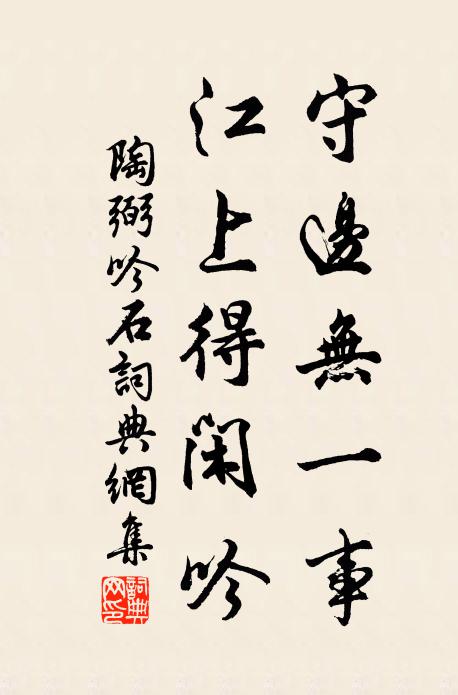 守邊無一事
江上得閑吟
陶弼吟石詞典網集
詞典網印